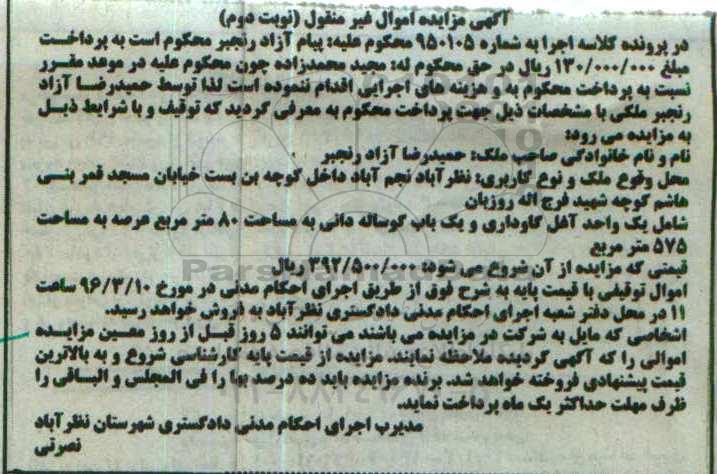 آگهی مزایده اموال غیر منقول (نوبت دوم)
در پرونده کلاسه اجرا به شماره ۹۵۰۱۰۵ محکوم علیه: پیام آزاد رنجبر محکوم است به پرداخت
مبلغ ۱۳۰/۰۰۰/۰۰۰ ریال در حق محکوم له: مجید محمدزاده چون محکوم علیه در موعد مقرر
نسبت به پرداخت محکوم به و هزینه های اجرایی اقدام ننموده است لذا توسط حمیدرضا آزاد
رنجبر ملکی با مشخصات ذیل جهت پرداخت محکوم به معرفی گردید که توقیف و با شرایط ذیل
به مزایده می رود:
نام و نام خانوادگی صاحب ملک: حمیدرضا آزاد رنجبر
محل وقوع ملک و نوع کاربری: نظرآباد نجم آباد داخل کوچه بن بست خیابان مسجد قمر بنی
هاشم کوچه شهید فرج اله روزبان
شامل یک واحد آغل گاوداری و یک باب گوساله دانی به مساحت ۸۰ متر مربع عرصه به مساحت
۵۷۵ متر مربع
قیمتی که مزایده از آن شروع می شود: ۳۹۲/۵۰۰/۰۰۰ ریال
اموال توقیفی با قیمت پایه به شرح فوق از طریق اجرای احکام مدنی در مورخ ۹۶/۳/۱۰ ساعت
۱۱ در محل دفتر شعبه اجرای احکام مدنی دادگستری نظرآباد به فروش خواهد رسید.
اشخاصی که مایل به شرکت در مزایده می باشند می توانند ۵ روز قبل از روز معین مزایده
اموالی را که آگهی گردیده ملاحظه نمایند. مزایده از قیمت پایه کارشناسی شروع و به بالاترین
قیمت پیشنهادی فروخته خواهد شد. برنده مزایده باید ده درصد بها را فی المجلس و الباقی را
ظرف مهلت حداکثر یک ماه پرداخت نماید.
مدیرب اجرای احکام مدنی دادگستری شهرستان نظرآباد
نصرتی